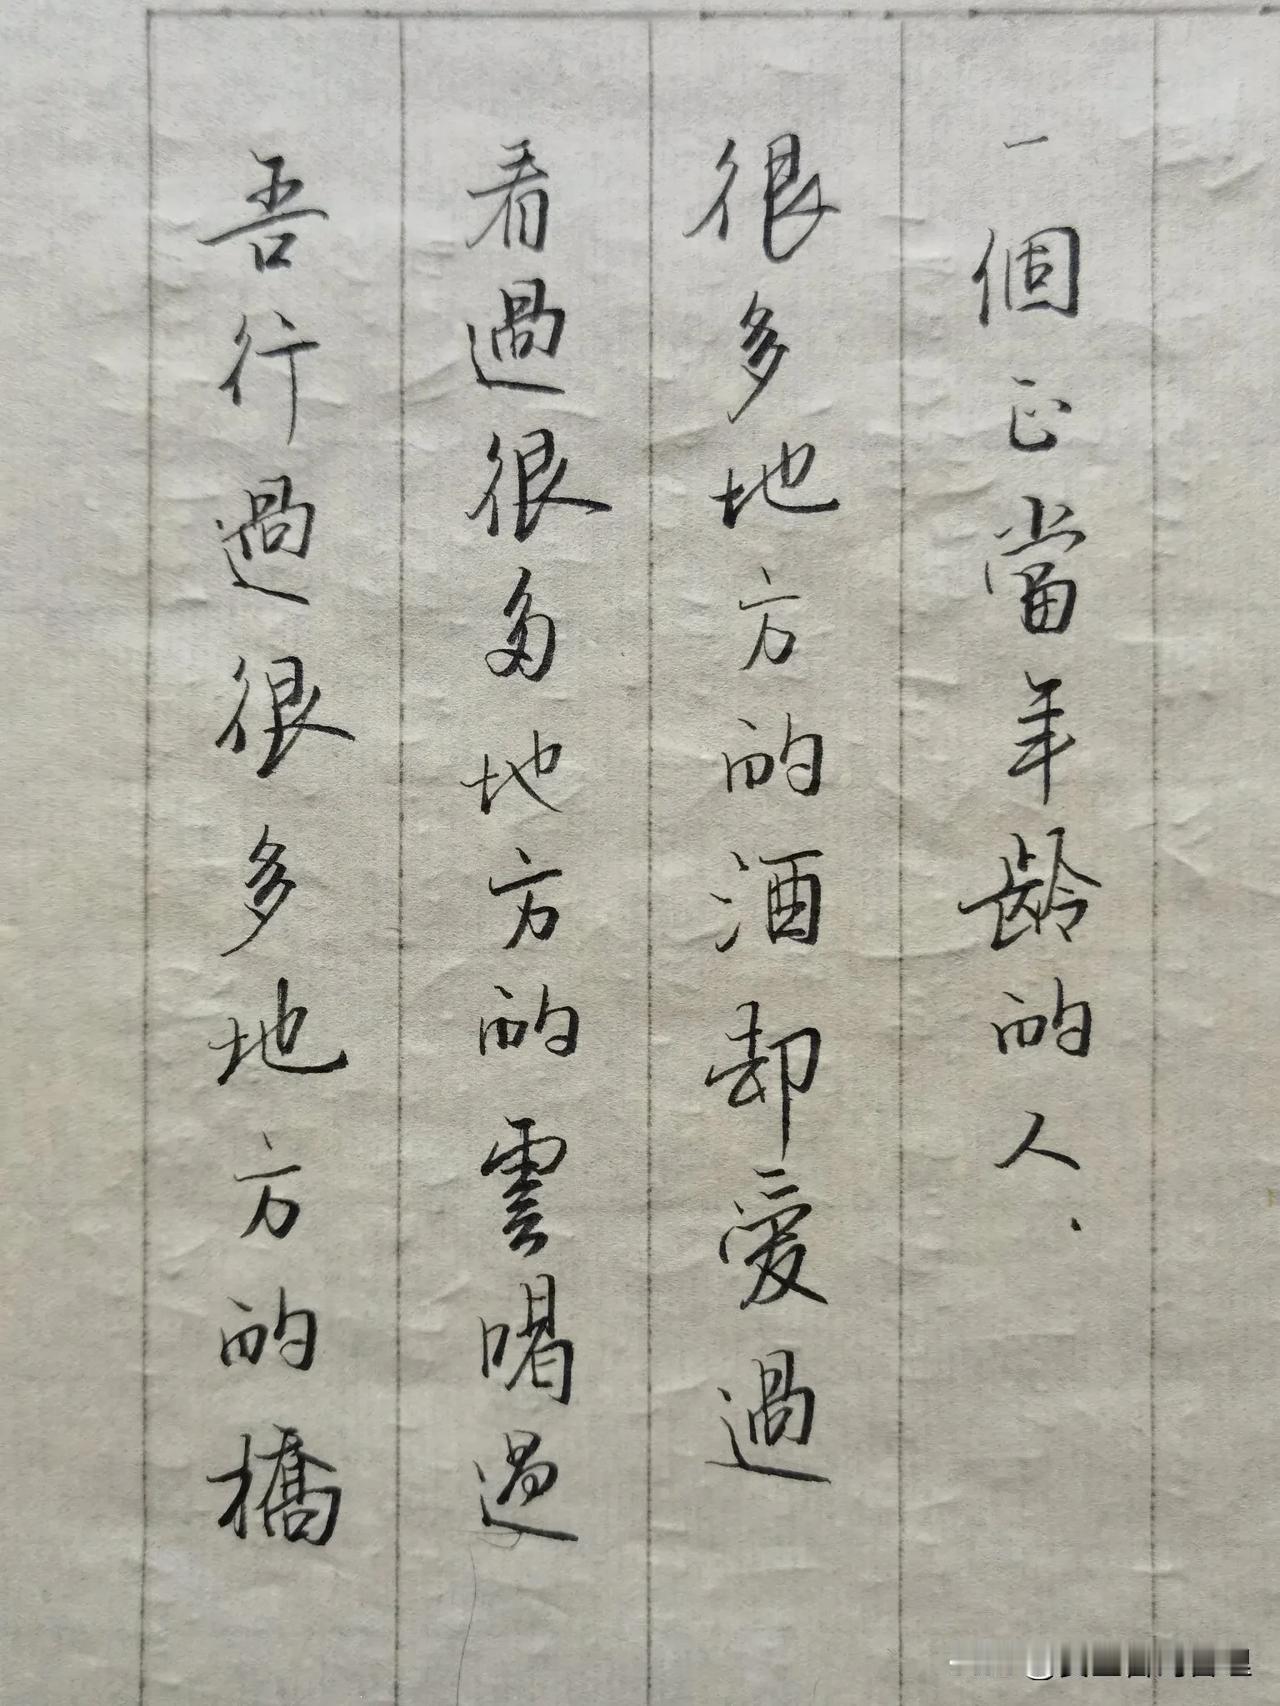 吾行過很多地方的橋
看過很多地方的雲喝過
很多地方的酒却愛過
一個正當年齡的人.